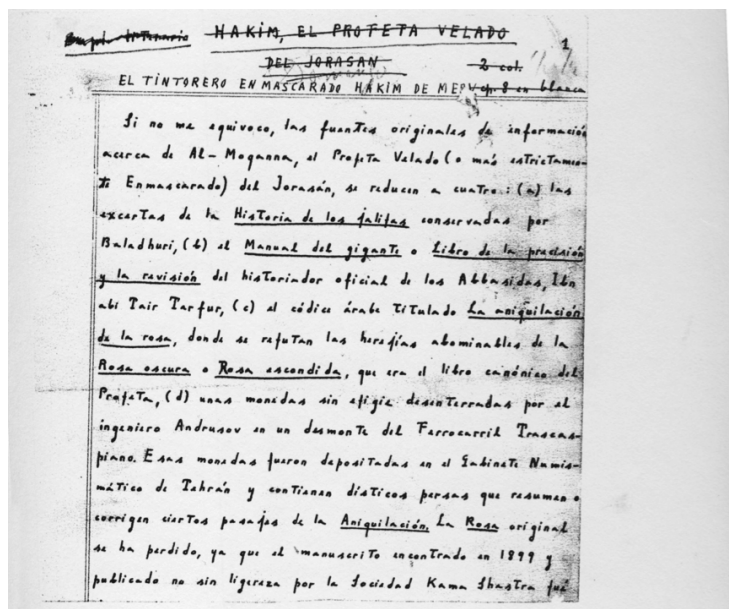 HAKIM, EL PROFETA VELADO
1
DEL JORASAN
2 col.
EL TINTORERO ENMASCARADO HAKIM DE MERV cp. 8 en blanca
Si no me equivoco, las fuentes originales de información
acerca de Al-Moqanna, el Profeta Velado (o más estrictamen-
te Enmascarado) del Jorasán, se reducen a cuatro: (a) las
excertas de la Historia de los jalifas conservadas por
Baladhuri, (b) el Manual del gigante o Libro de la precisión
y la revisión del historiador oficial de los Abbasidas, Ibn
abi Tair Tarfur, (c) el códice árabe titulado La aniquilación
de la rosa, donde se refutan las herejías abominables de la
Rosa oscura o Rosa escondida, que era el libro canónico del
Profeta, (d) unas monedas sin efigie desenterradas por el
ingeniero Andrusov en un desmonte del Ferrocarril Trascas-
piano. Esas monedas fueron depositadas en el Gabinete Numis-
mático de Tehrán y contienen dísticos persas que resumen o
corrigen ciertos pasajes de la Aniquilación. La Rosa original
se ha perdido, ya que el manuscrito encontrado en 1899 y
publicado no sin ligereza por la Sociedad Kama Shastra fué